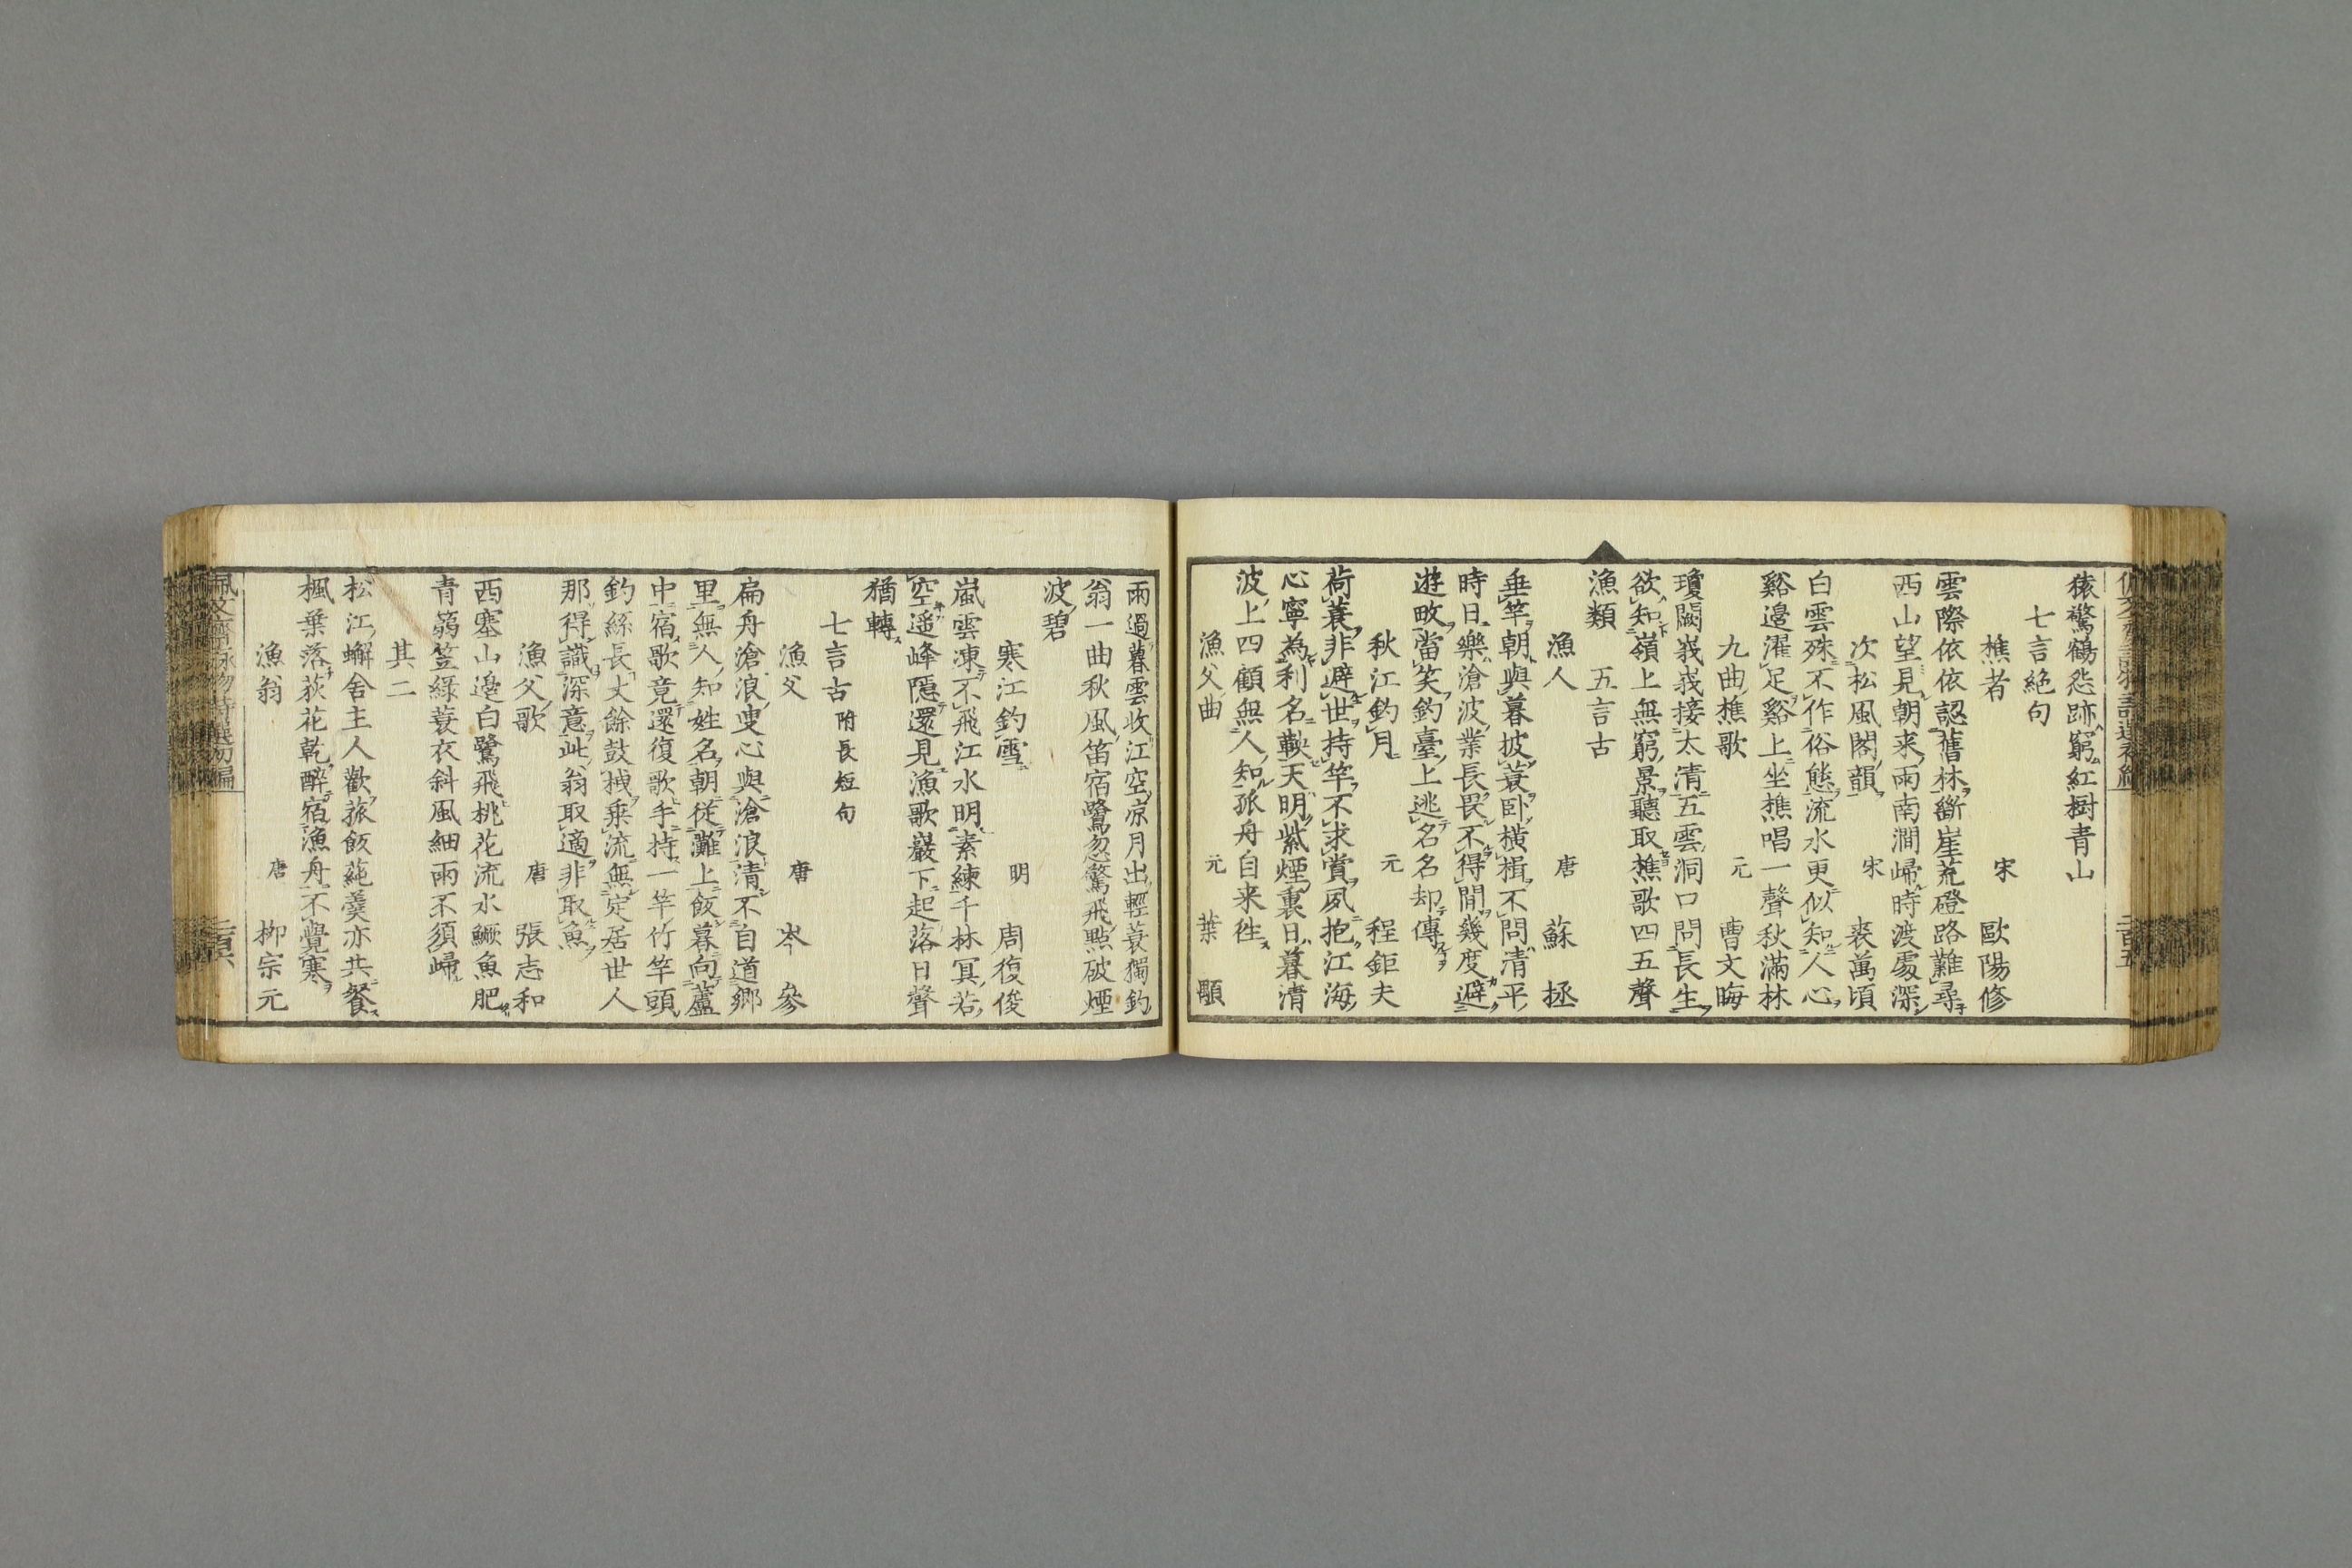 猿驚鶴怨跡窮紅樹青山
七言絕句
樵者 宋 歐陽修
雲際依依認舊林斷崖荒磴路難尋
西山望見朝来雨南澗歸時渡處深
次松風閣韻 宋 裘萬頃
白雲殊不作俗態流水更似知人心
谿邊濯足谿上坐樵唱一聲秋滿林
九曲樵歌 元 曹文晦
瓊闕峩峩接太清五雲洞口問長生
欲知嶺上無窮景聽取樵歌四五聲
漁類 五言古
漁人 唐 蘇拯
垂竿朝與暮披蓑卧橫楫不問清平
時日樂滄波業長畏不得閒幾度避
遊畋當笑釣臺上逃名名却傳
秋江釣月 元 程鉅夫
荷蓑非避世持竿不求賞夙抱江海
心寧為利名鞅天明紫煙裏日暮清
波上四顧無人知孤舟自来往
漁父曲 元 葉顒
雨過暮雲收江空凉月出輕蓑獨釣
翁一曲秋風笛宿鷺忽驚飛點破煙
波碧
寒江釣雪 明 周復俊
嵐雲凍不飛江水明素練千林冥若
空遥峰隱還見漁歌巖下起落日聲
猶轉
七言古 附長短句
漁父 唐 岑參
扁舟滄浪叟心與滄浪清不自道鄉
里無人知姓名朝從灘上飯暮向蘆
中宿歌竟還復歌手持一竿竹竿頭
釣絲長丈餘鼓枻乗流無定居世人
那得識深意此翁取適非取魚
漁父歌 唐 張志和
西塞山邊白鷺飛桃花流水鱖魚肥
青篛笠綠蓑衣斜風細雨不須歸
其二
松江蠏舍主人歡菰飯蓴羹亦共餐
楓葉落荻花乾醉宿漁舟不覺寒
漁翁 唐 柳宗元
佩文齋詠物詩選初編